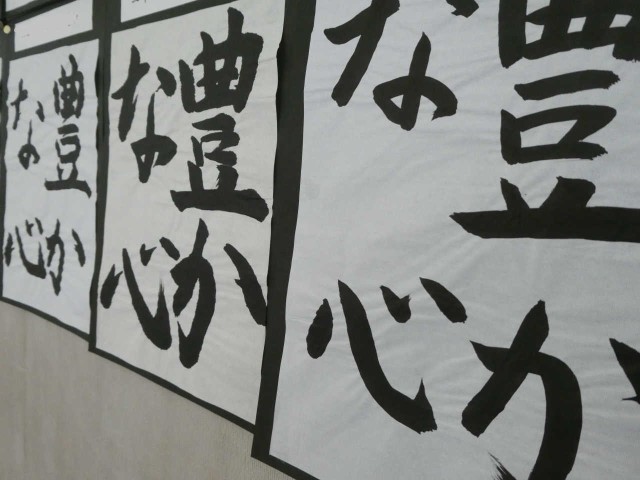 豊か
な心
豊か
な心
豊か
な心